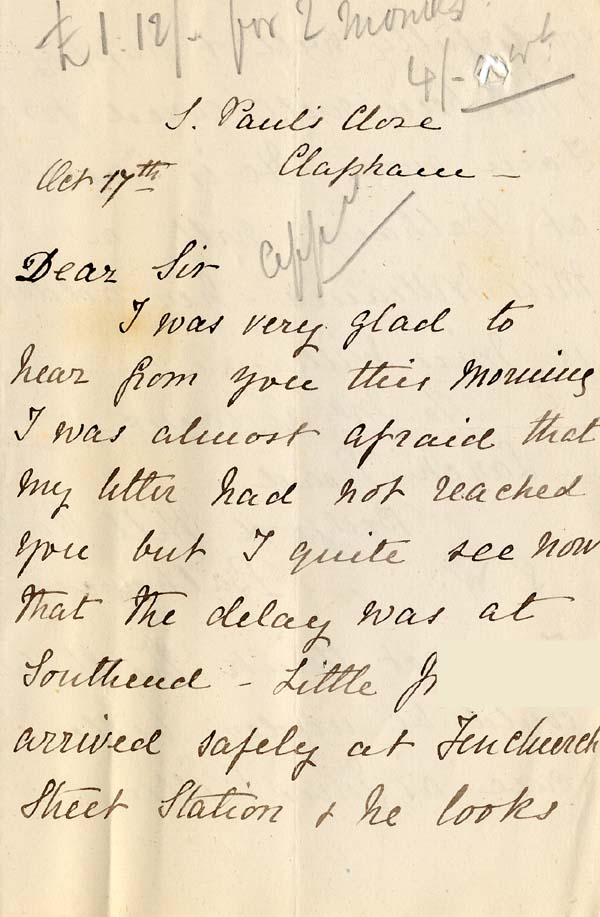 £1.12/- for 2 months.
4/-
S. Paul's Close
Clapham -
Oct 17th
Dear Sir
I was very glad to
hear from you this morning
I was almost afraid that
my letter had not reached
you but I quite see now
that the delay was at
Southend - Little J
arrived safely at Fenchurch
Street Station & he looks